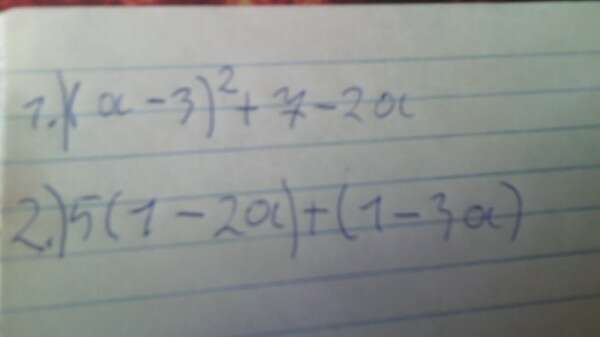 1.)(a-3)²+7-2a
2.)5(1-2a)+(1-3a)